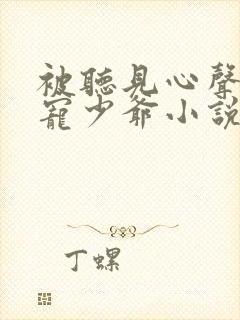 被聽見心聲
寵少爺小說
丁螺